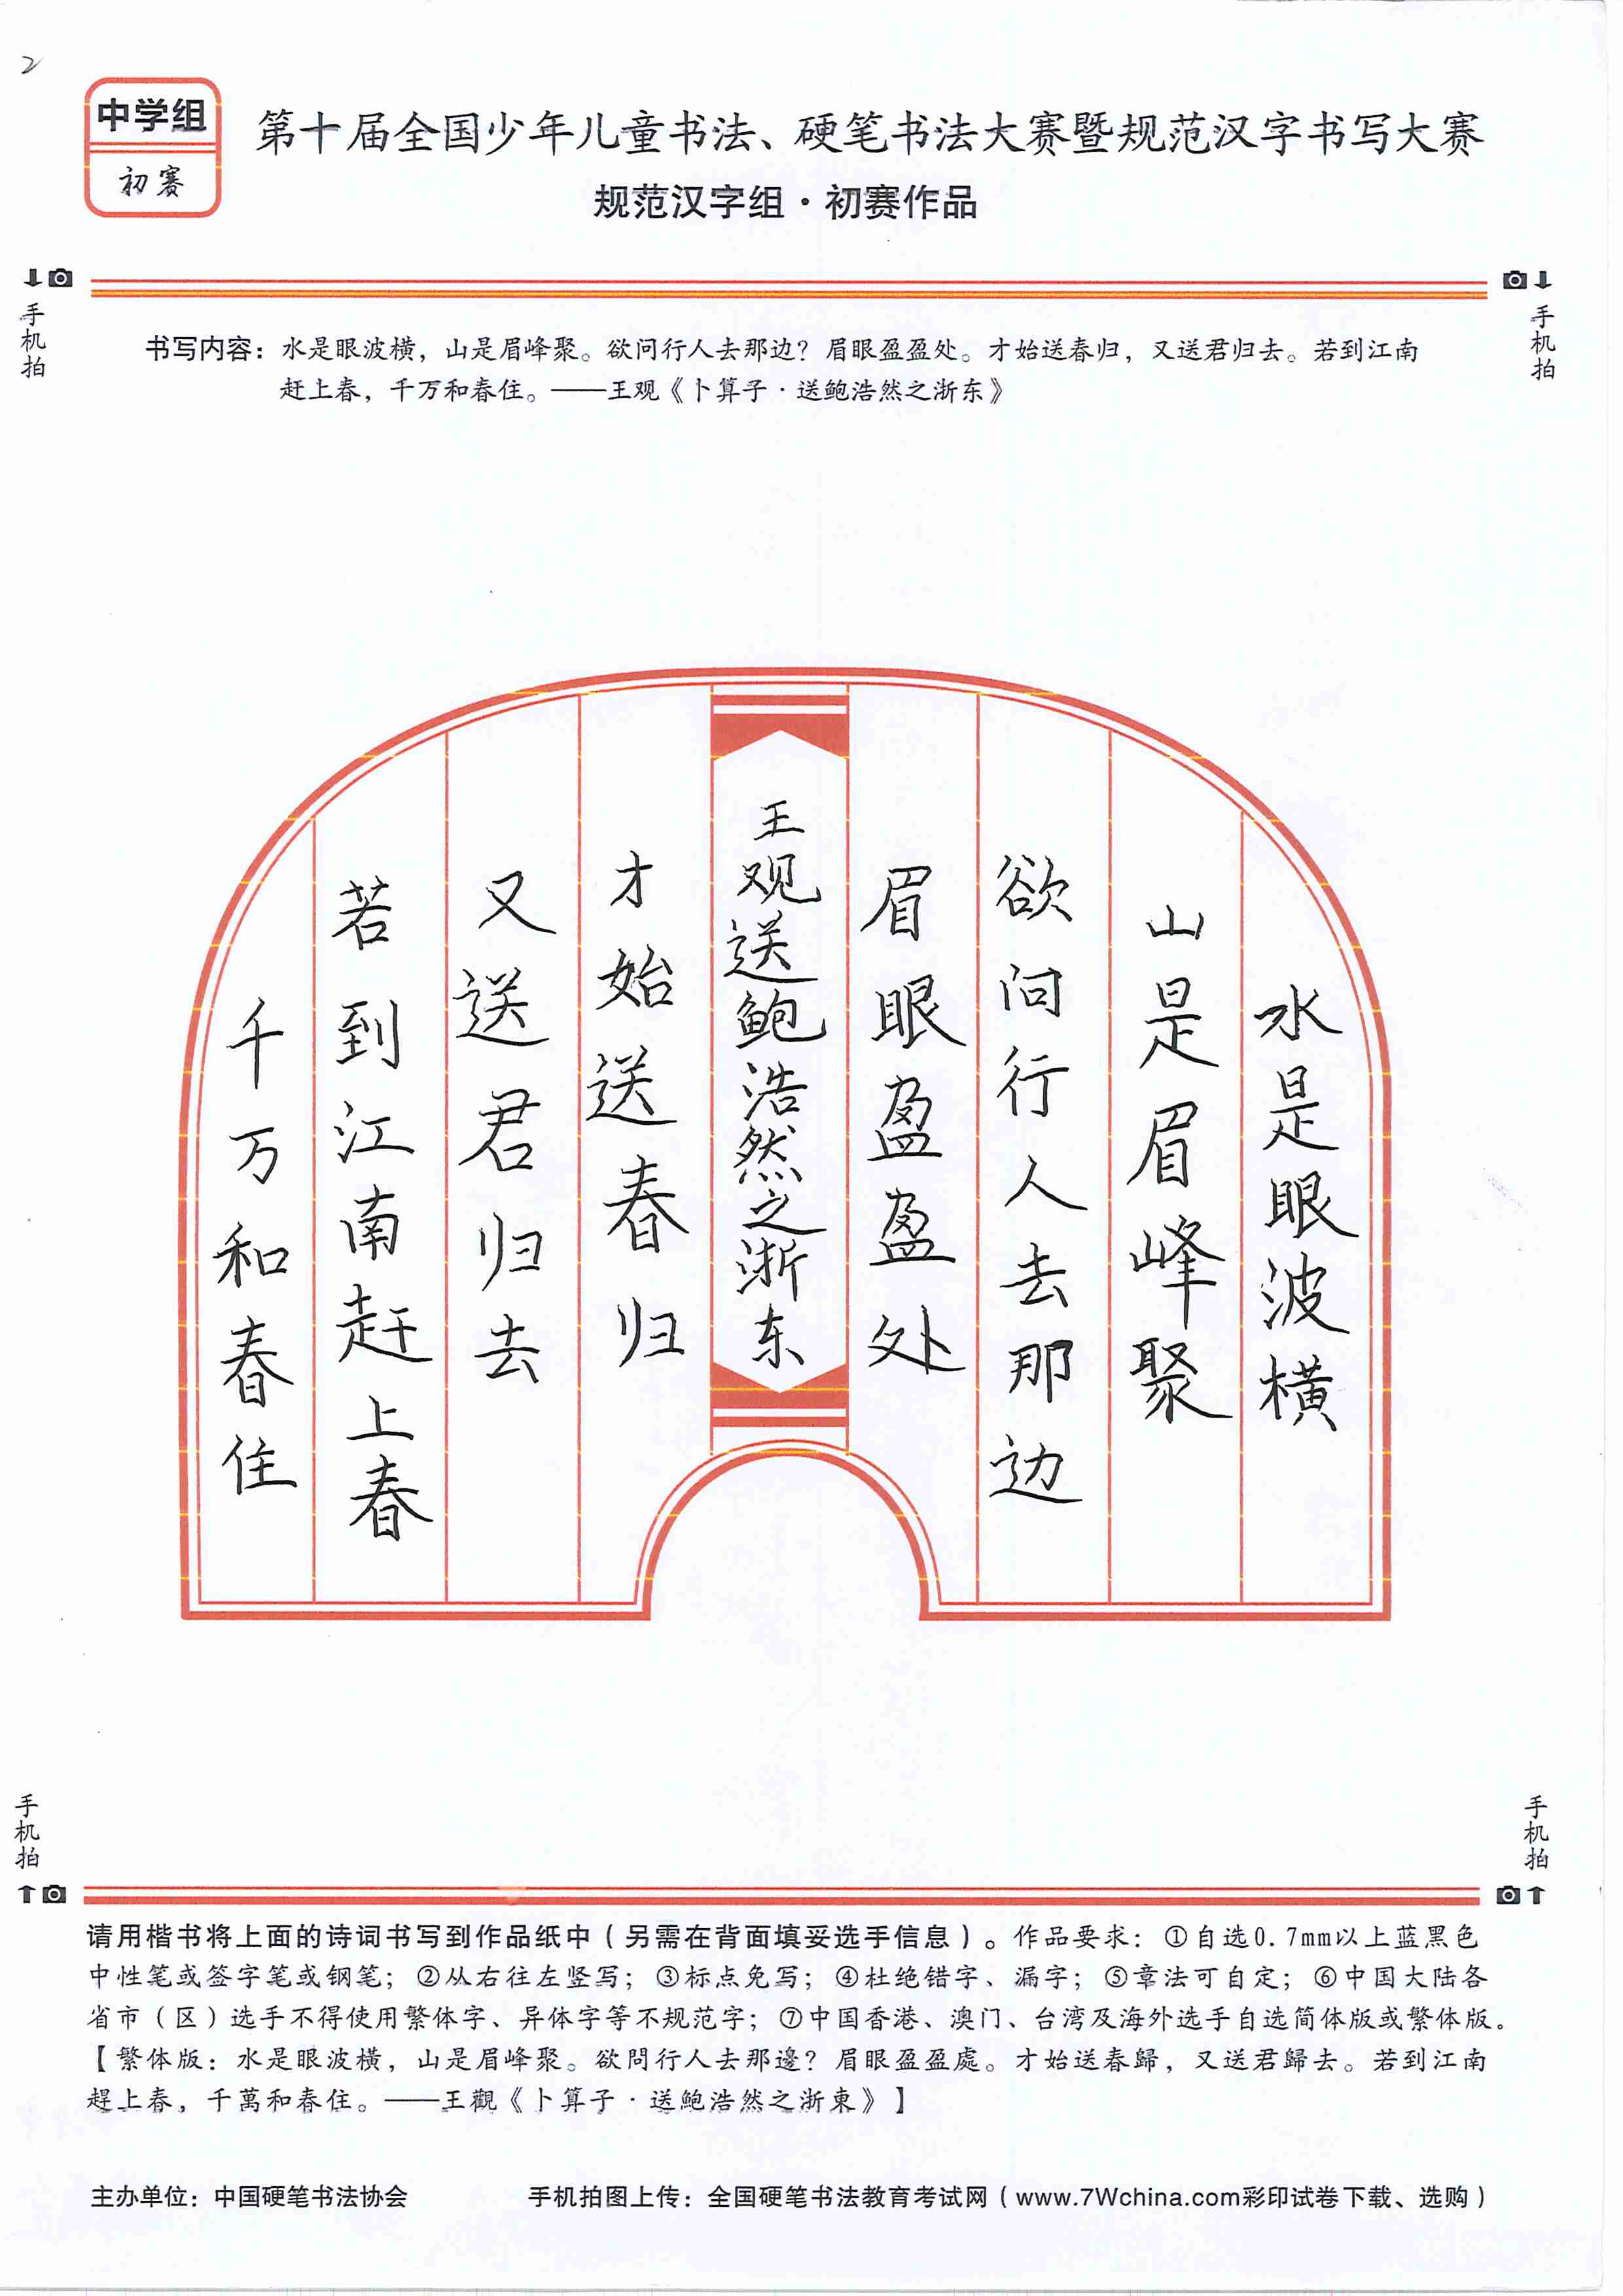 2
中学组
初赛
第十届全国少年儿童书法、硬笔书法大赛暨规范汉字书写大赛
规范汉字组·初赛作品
手机拍
手机拍
书写内容：水是眼波横，山是眉峰聚。欲问行人去那边？眉眼盈盈处。才始送春归，又送君归去。若到江南
赶上春，千万和春住。——王观《卜算子·送鲍浩然之浙东》
水是眼波横
山是眉峰聚
欲问行人去那边
眉眼盈盈处
王观送鲍浩然之浙东
才始送春归
又送君归去
若到江南赶上春
千万和春住
手机拍
手机拍
请用楷书将上面的诗词书写到作品纸中（另需在背面填妥选手信息）。作品要求：①自选0.7mm以上蓝黑色
中性笔或签字笔或钢笔；②从右往左竖写；③标点免写；④杜绝错字、漏字；⑤章法可自定；⑥中国大陆各
省市（区）选手不得使用繁体字、异体字等不规范字；⑦中国香港、澳门、台湾及海外选手自选简体版或繁体版。
【繁体版：水是眼波橫，山是眉峰聚。欲問行人去那邊？眉眼盈盈處。才始送春歸，又送君歸去。若到江南
趕上春，千萬和春住。——王觀《卜算子·送鮑浩然之浙東》】
主办单位：中国硬笔书法协会
手机拍图上传：全国硬笔书法教育考试网（www.7Wchina.com彩印试卷下载、选购）